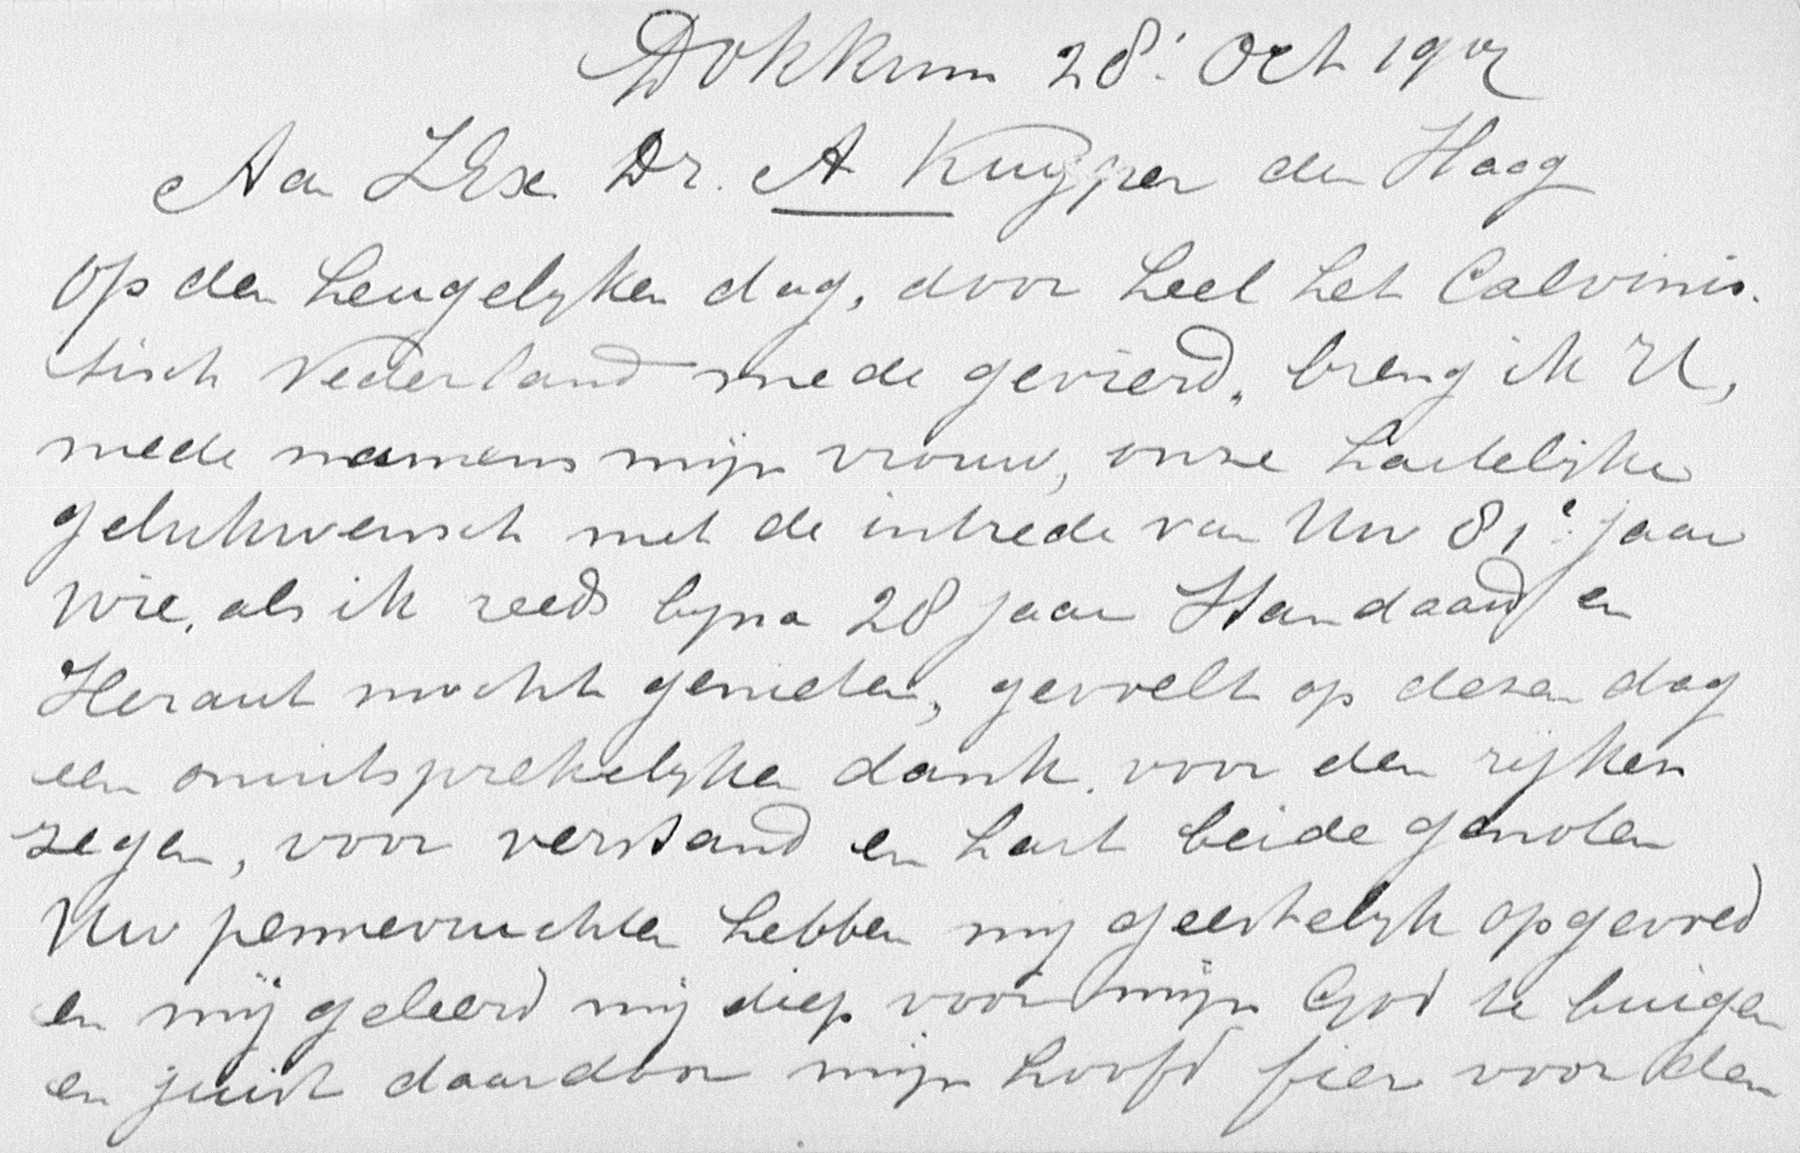 Dokkum 28: Oct 19
Aan ZExc Dr. A Kuyper den Haag
Op den heugelyken dag, door heel het Calvinis-
tisch Nederland mede gevierd, breng ik U,
mede namens mijn vrouw, onze hartelijke
gelukwensch met de intrede van Uw 81e jaar
Wie, als ik reeds byna 28 jaar Standaard en
Heraut mocht genieten, gevoelt op dezen dag
een onuitsprekelyken dank voor den rijken
zegen, voor verstand en hart beide genoten
Uw pennevruchten hebben mij geestelyk opgevoed
en mij geleerd mij diep voor mijn God te buigen
en juist daardoor mijn hoofd fier voor den